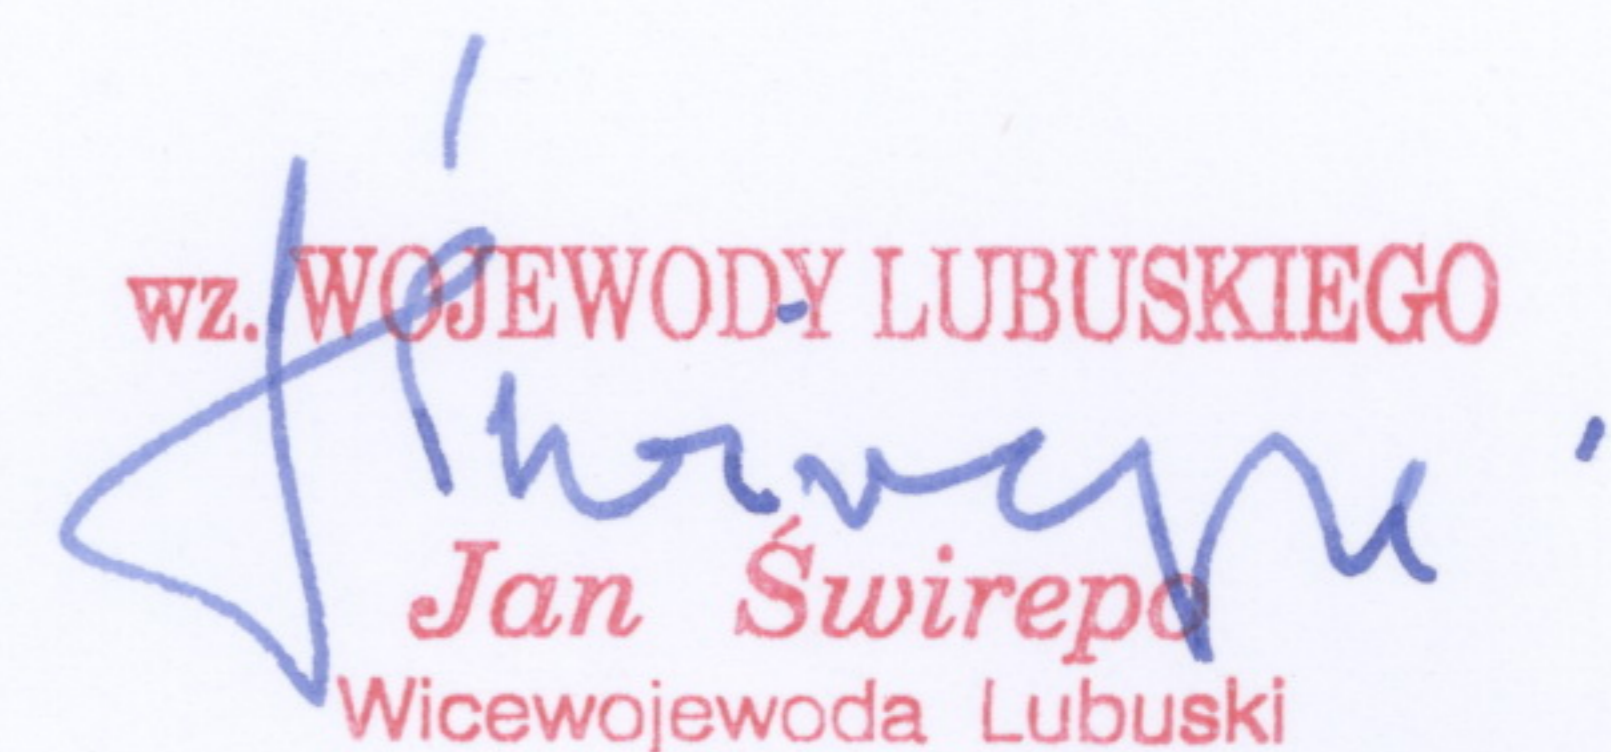 wz. WOJEWODY LUBUSKIEGO
Jan Świrepo
Wicewojewoda Lubuski